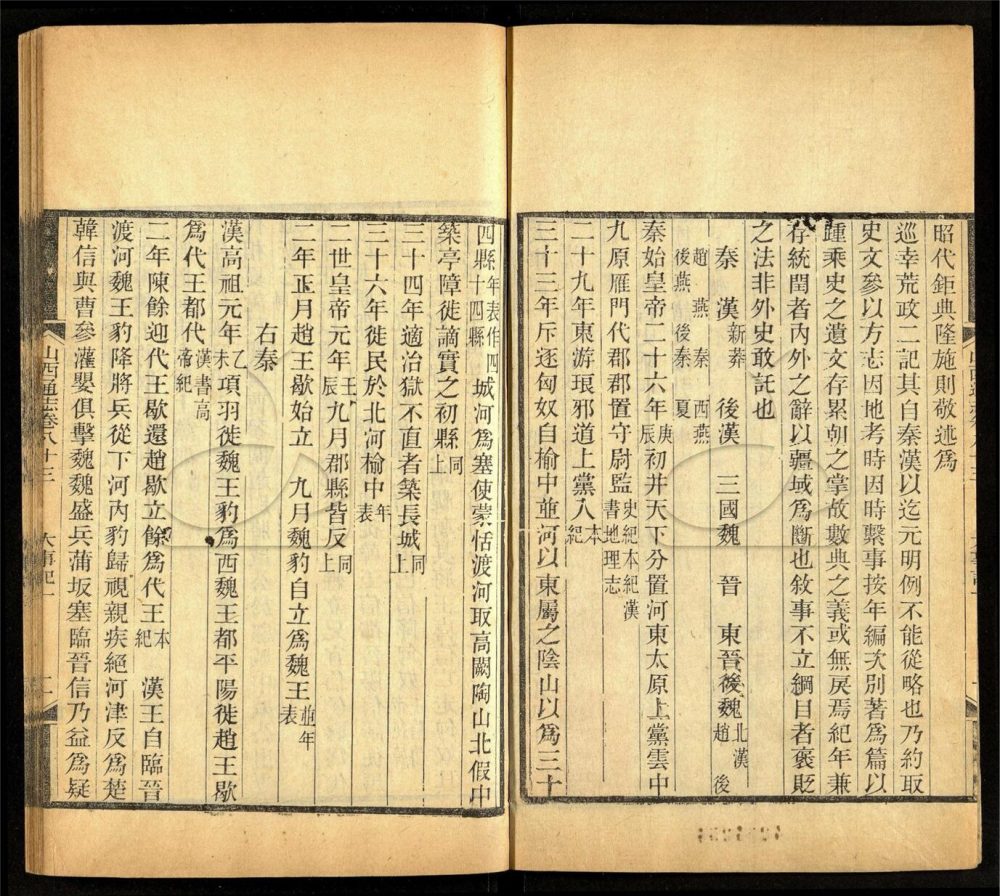 昭代鉅典隆施則敬述爲
巡幸荒政二記其自秦漢以迄元明例不能從略也乃約取
史文參以方志因地考時因時繫事按年編次別著爲篇以
踵乘史之遺文存累朝之掌故數典之義或無戾焉紀年兼
存統閏者內外之辭以疆域爲斷也敘事不立綱目者褒貶
之法非外史敢託也
秦 漢新莽 後漢 三國魏 晉 東晉後魏北漢趙 後
趙 燕 秦 西燕 後燕 後秦 夏
秦始皇帝二十六年庚辰初并天下分置河東太原上黨雲中
九原雁門代郡郡置守尉監史紀本紀漢書地理志
二十九年東游琅邪道上黨入本紀
三十三年斥逐匈奴自榆中並河以東屬之陰山以爲三十
四縣年表作四十四縣城河爲塞使蒙恬渡河取高闕陶山北假中
築亭障徙謫實之初縣同上
三十四年適治獄不直者築長城同上
三十六年徙民於北河榆中年表
二世皇帝元年壬辰九月郡縣皆反同上
二年正月趙王歇始立 九月魏豹自立爲魏王並年表
右秦
漢高祖元年乙未項羽徙魏王豹爲西魏王都平陽徙趙王歇
爲代王都代漢書高帝紀
二年陳餘迎代王歇還趙歇立餘爲代王本紀 漢王自臨晉
渡河魏王豹降將兵從下河內豹歸視親疾絕河津反爲楚
韓信與曹參灌嬰俱擊魏魏盛兵蒲坂塞臨晉信乃益爲疑
山西通志卷八十三 大事記一 二